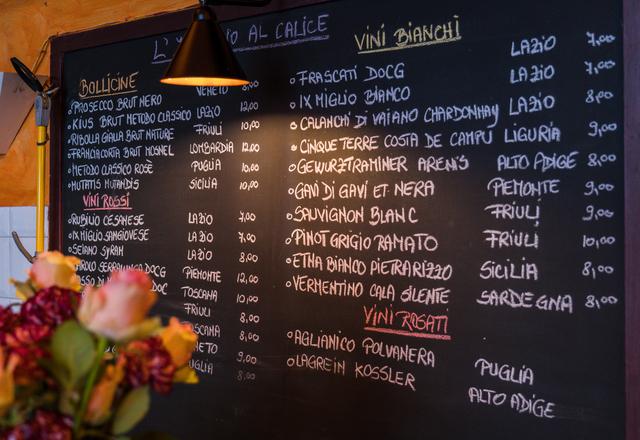 L' AL CALICE
BOLLICINE
PROSECCO BRUT NERO VENETO 8,00
KIUS BRUT METODO CLASSICO LAZIO 12,00
RIBOLLA GIALLA BRUT NATURE FRIULI 10,00
FRANCIACORTA BRUT MOSNEL LOMBARDIA 12,00
METODO CLASSICO ROSÈ PUGLIA 10,00
MUTATIS MUTANDIS SICILIA 10,00
VINI ROSSI
RUBILIO CESANESE LAZIO 7,00
IX MIGLIO SANGIOVESE LAZIO 7,00
SEIANO SYRAH LAZIO 8,00
DOCG PIEMONTE 12,00
DOC TOSCANA 10,00
FRIULI 8,00
8,00
9,00
8,00
VINI BIANCHI
FRASCATI DOCG LAZIO 7,00
IX MIGLIO BIANCO LAZIO 7,00
CALANCHI DI VAIANO CHARDONNAY LAZIO 8,00
CINQUE TERRE COSTA DE CAMPU LIGURIA 9,00
GEWURZTRAMINER ARENIS ALTO ADIGE 8,00
GAVI DI GAVI ET NERA PIEMONTE 9,00
SAUVIGNON BLANC FRIULI 9,00
PINOT GRIGIO RAMATO FRIULI 10,00
ETNA BIANCO PIETRARIZZO SICILIA 8,00
VERMENTINO CALA SILENTE SARDEGNA 8,00
VINI ROSATI
AGLIANICO POLVANERA PUGLIA
LAGREIN KOSSLER ALTO ADIGE